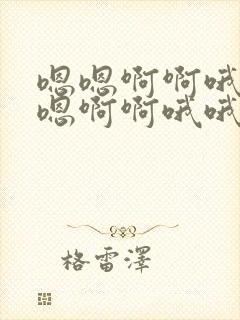 嗯嗯啊啊哦
嗯啊啊哦哦
格雷澤